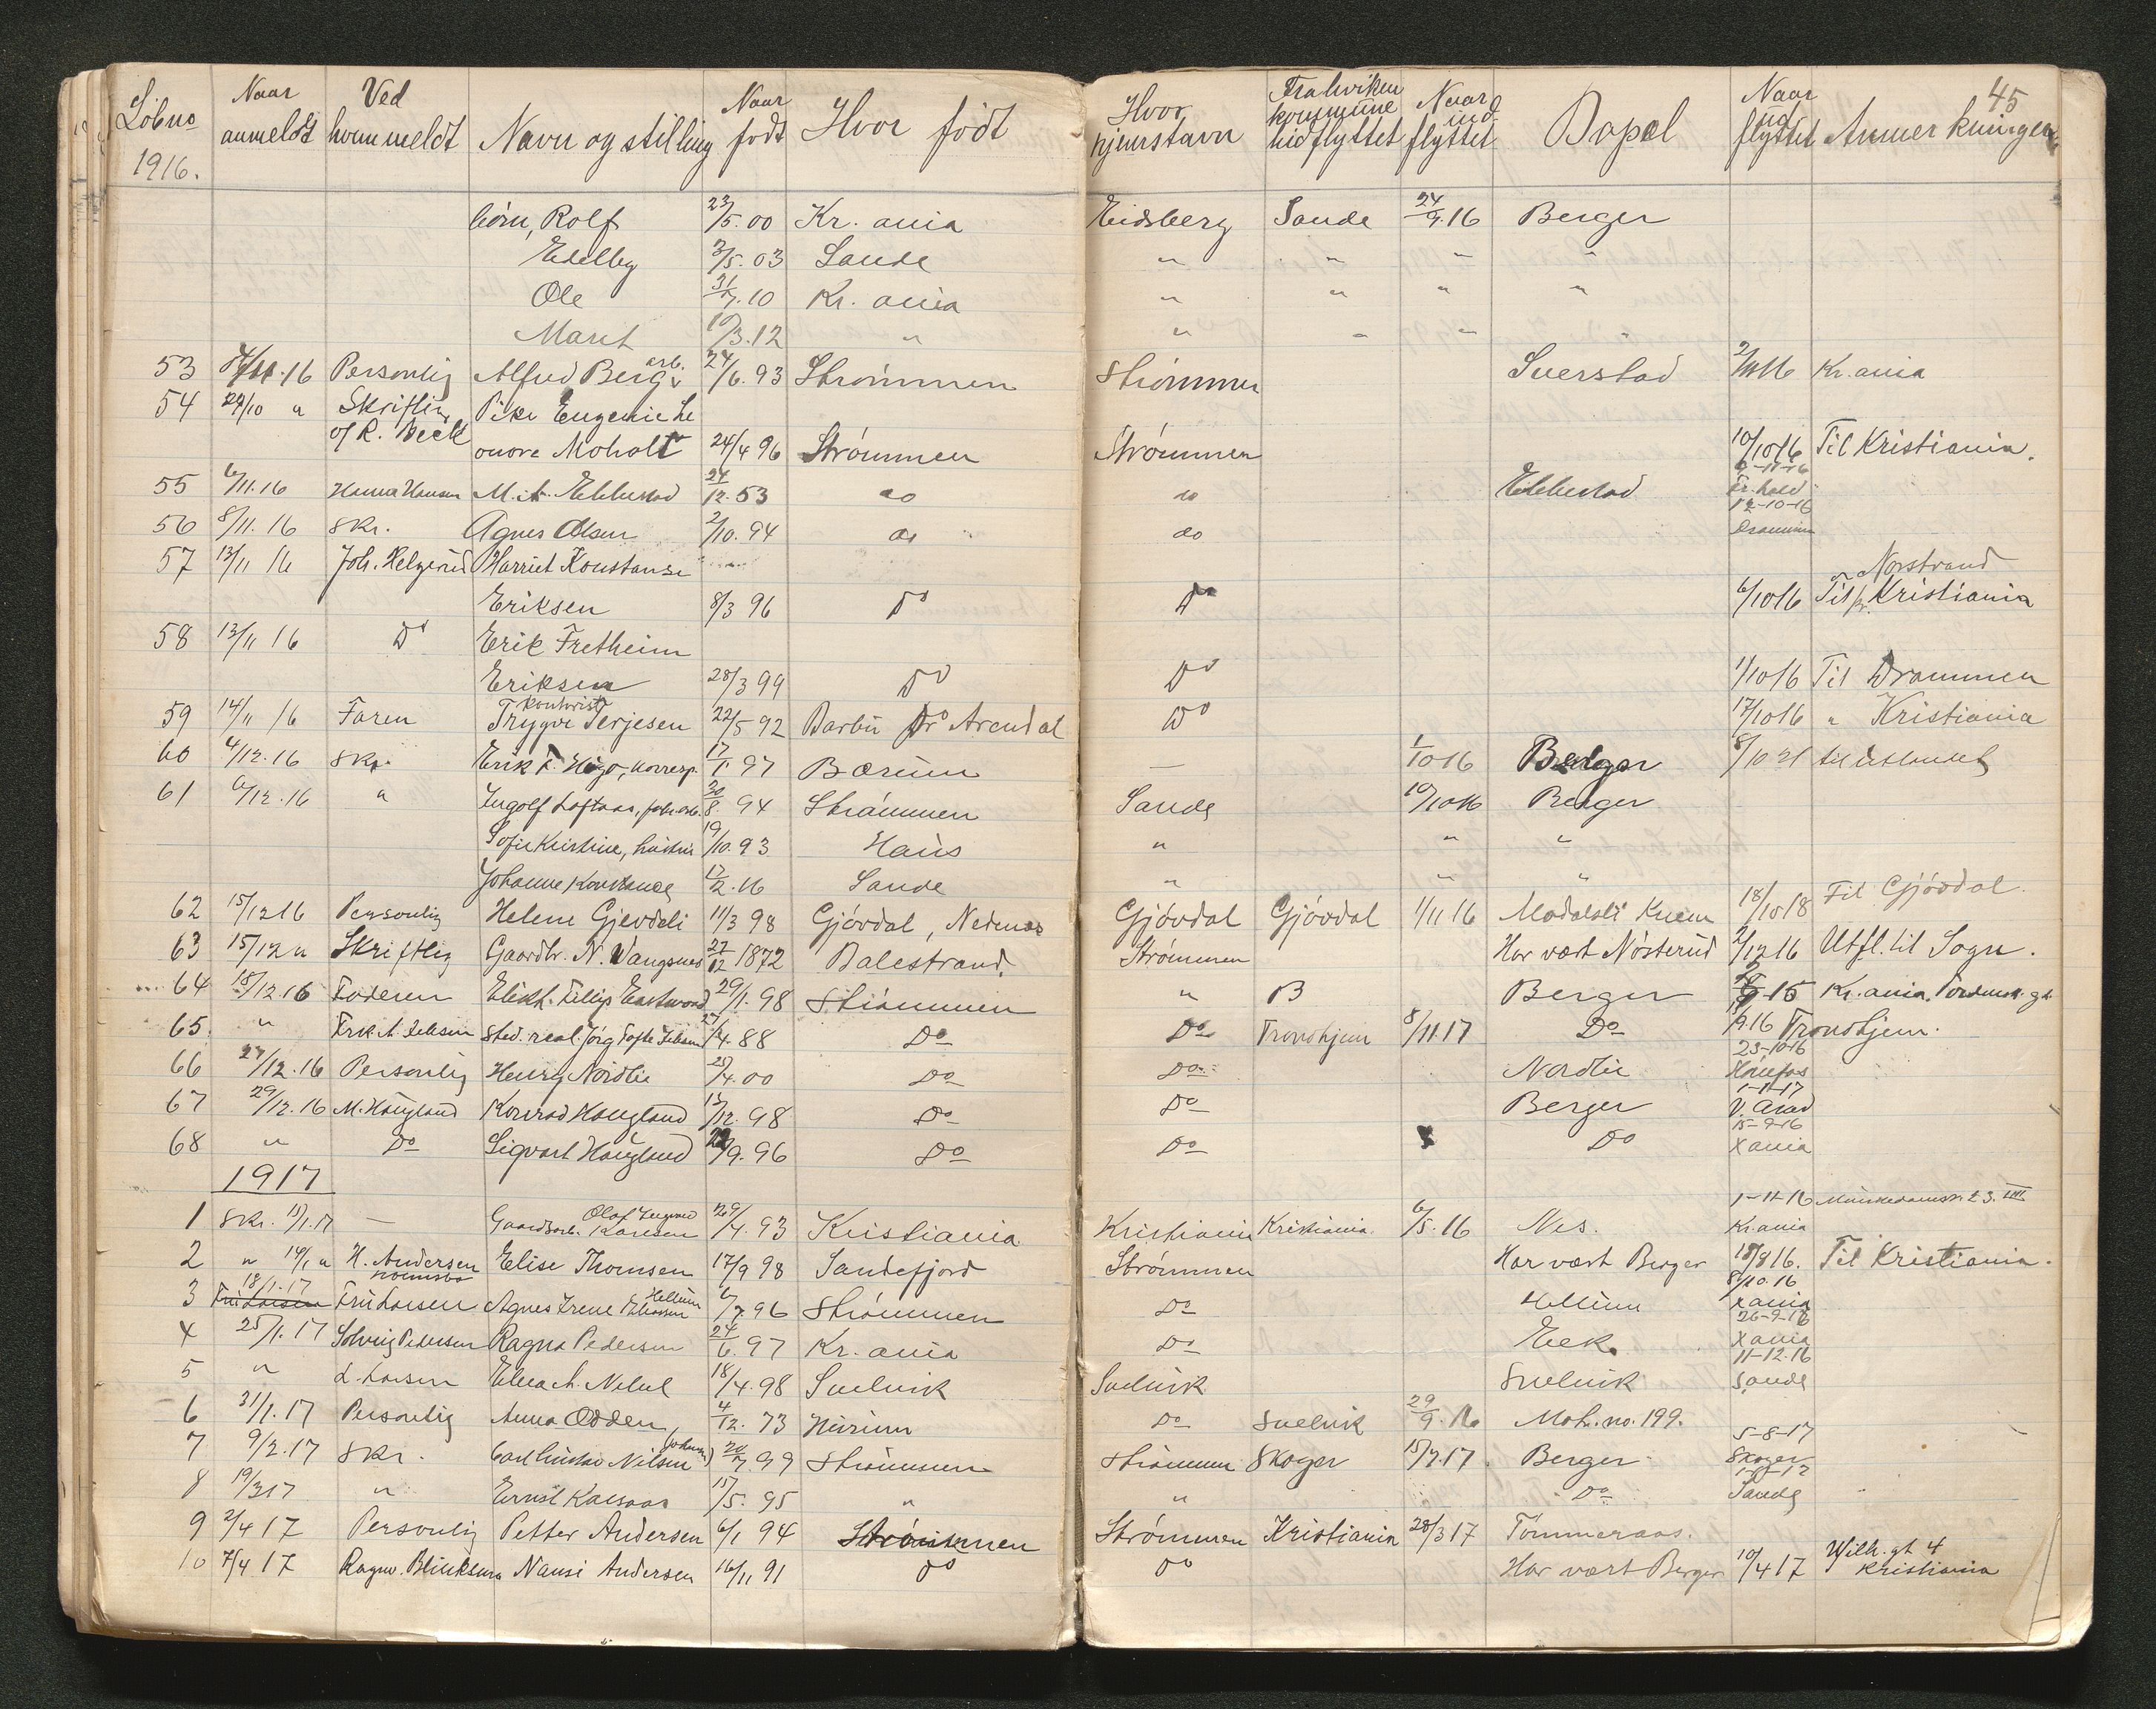 45
Löbno Naar anmeldt Ved hvem meldt Navn og stilling Naar födt Hvor födt Hvor hjemstavn Fra hviken kommune hidflyttet Naar indflyttet Bopel Naar udflyttet Anmerkninger
1916.
börn, Rolf 23/5.00 Kr.ania Eidsberg Sande 24/9.16 Berger
Edelby 3/5.03 Sande " " " "
Ole 31/7.10 Kr.ania " " " "
Marit 10/3.12 " " " " "
53 16 Personlig Alfred Berg arb. 24/6.93 Strömmen Strömmen Sverstad Kr.ania
54 24/10 " Skriftlig Pike Eugenie Le
of R. Beck onore Moholt 24/4 96 Strömmen Strömmen 10/10 16 Til Kristiania.
55 6/11.16 Hanna Hansen M. A. Ebbestad 24/12.53 do do Ebbestad 9-11-16 Fr.hald
56 8/11.16 Skr. Agnes Olsen 2/10.94 do do 12-10-16 Drammen
57 13/11 16 Joh. Helgerud Harriet Konstanse
Eriksen 8/3 96 Do Do 6/10 16 Til Norstrand pr. Kristiania
58 13/11 16 Do Erik Fretheim
Eriksen 28/3 99 Do Do 1/10 16 Til Drammen
59 14/11 16 Faren Kontorist Trygve Terjesen 22/5 92 Barbu pr Arendal Do 17/10 16 " Kristiania
60 4/12.16 Skr. Erik F. korresp. 17/1 97 Bærum — 1/10 16 Berger 8/10 21 til utlandet
61 6/12.16 " Ingolf Loftaas, fabr.arb. 30/8. 94 Strömmen Sande 10/10 16 Berger
Sofie Kristine, hustru 19/10.93 Haus " " "
Johanne Konstance 17/2.16 Sande " " "
62 15/12 16 Personlig Helene Gjevdeli 11/3 98 Gjövdal, Nedenes Gjövdal Gjövdal 1/11 16 Madalsli Kuem 18/10 18 Til Gjövdal.
63 15/12 " Skriftlig Gaardbr. N. Vangsnes 27/12 1872 Balestrand. Strömmen Har vært Nösterud 2/12 16 Utfl. til Sogn.
64 18/12.16 Foderen Elikh. Fillip Eastwood 29/1.98 Strömmen " B Berger 15 Kr.ania.
65. " Frk. A. Jebsen Stud. real. Jörg Tofte Jebsen 27/4.88 Do Do Trondhjem 8/11.17 Do 9.16 Trondhjem.
66 27/12.16 Personlig Henry Nordlie 25/4.00 Do Do Nordlie 23-10-16 Hönefos
67 29/12.16 M. Haugland Konrad Haugland 15/12.98 Do Do Berger 1-11-17 V. Aad
68 " Do Sigvart Haugland 22/9.96 Do Do Do 15-9-16 Xania
1917
1 Skr. 11/1.17 — Gaardsarb. Olaf Ingvard Karlsen 29/4.93 Kristiania Kristiania Kristiania 6/5.16 Nes. 1-11-16 Kr.ania Munkedamsv. 23. III
2 " 14/1 " H. Andersen Elise Thomsen 17/9 98 Sandefjord Strömmen Har vært Berger 18/8 16. Til Kristiania.
3 18/1.17 Fru Larsen Fru Larsen Agnes Irene Eliassen Hellum 6/7 96 Strömmen Do Hellum 8/10.16 Xania
4 25/1.17 Solveig Pedersen Ragna Pedersen 24/6.97 Kr.ania Do Eek. 26-9-16 Xania
5 " L. Larsen Elna A. 18/4.98 Svelvik Svelvik Svelvik 11-12.16 Sande
6 31/1.17 Personlig Anna Odden, 4/12. 73 Hurum Do Svelvik 29/9.16 Matr.no.199.
7 9/2.17 Skr. Carl Gustav Nilsen (Johansen) 20/7.99 Strömmen Strömmen Skoger 15/2.17. Berger 5-8-17 Skoger
8 19/3 17 " Ernst Karlsaas 15/5.95 " " Do Sande
9 2/4 17 Personlig Petter Andersen 6/1 94 Strömmen Strömmen Kristiania 28/3 17 Tömmeraas.
10 7/4 17 Ragnv. Nansi Andersen 16/11 91 Do Do Har vært Berger 10/4 17 Wilh. gt 4 Kristiania